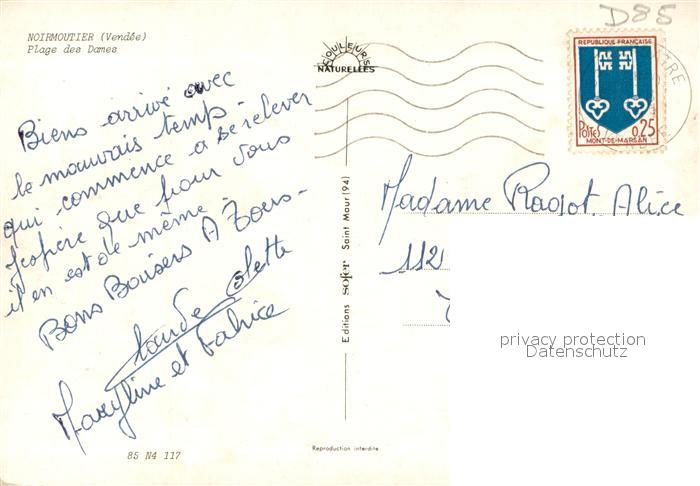 NOIRMOUTIER (Vendée)
Plage des Dames
COULEURS
NATURELLES
Biens arrivé avec
le mauvais temps -
qui commence a se relever
Jespère que pour vous
il en est de même -
Bons Baisers A Tous -
Claude Colette
Maryline et Fabrice
85 N4 117
Editions sofer Saint Maur (94)
Reproduction interdite
D85
REPUBLIQUE FRANÇAISE
POSTES 0,25
MONT-DE-MARSAN
Madame Ragot. Alice
112
privacy protection
Datenschutz